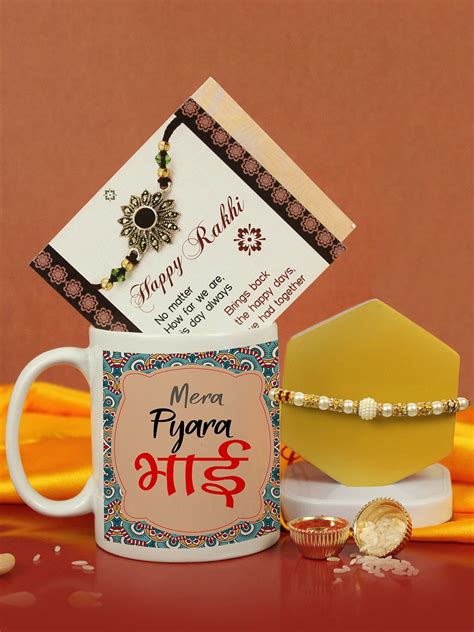 Happy Rakhi
No matter
How far we are,
is day always
Brings back
the happy days,
had together
Mera
Pyara
भाई